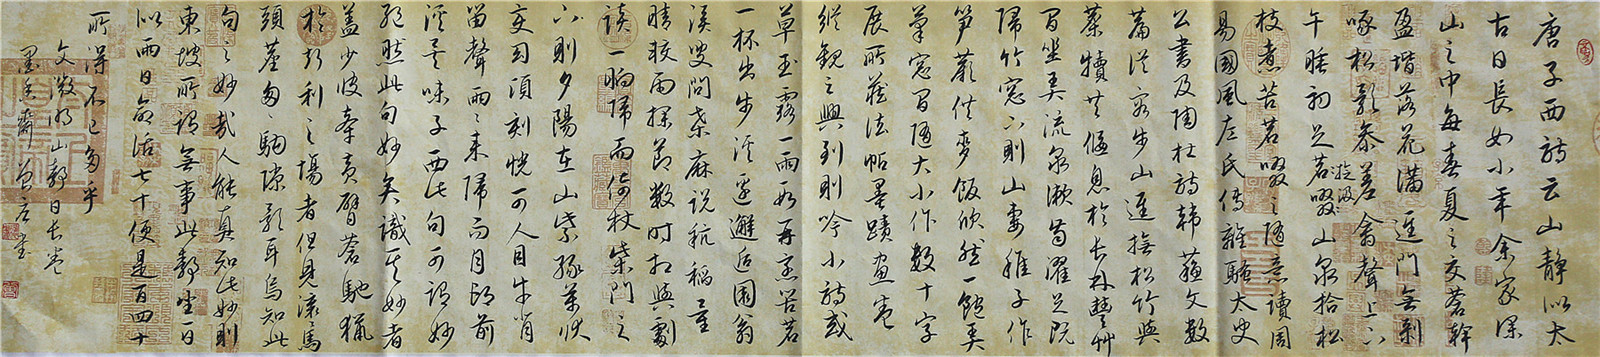 唐子西詩云山靜似太
古日長如小年余家深
山之中每春夏之交蒼蘚
盈堦落花滿逕門無剝
啄松影參差禽聲上下
午睡初足茗啜山泉拾松
旋汲
枝煮苦茗啜之隨意讀周
易國風左氏傳離騷太史
公書及陶杜詩韓蘇文數
篇從容步山逕撫松竹與
麋犢共偃息於長林豐艸
間坐弄流泉漱齒濯足既
歸竹窓下則山妻稚子作
筍蕨供麥飯欣然一飽弄
筆窓間隨大小作數十字
展所藏法帖墨蹟畫卷
縱觀之興到則吟小詩或
草玉露一兩段再烹苦茗
一杯出步溪邊邂逅園翁
溪叟問桑麻說秔稻量
晴校雨探節數時相與劇
談一晌歸而倚杖柴門之
下則夕陽在山紫綠萬狀
变幻頃刻恍可人目牛背
笛聲兩兩来歸而月印前
溪矣味子西此句可謂妙
絕然此句妙矣識其妙者
蓋少彼牽黃臂蒼馳獵
於聲利之場者但見滚滚馬
頭塵匆匆駒隙影耳烏知此
句之妙哉人能真知此妙則
東坡所謂無事此靜坐一日
似兩日若活七十便是百四十
所得不已多乎
文徵明山靜日長卷